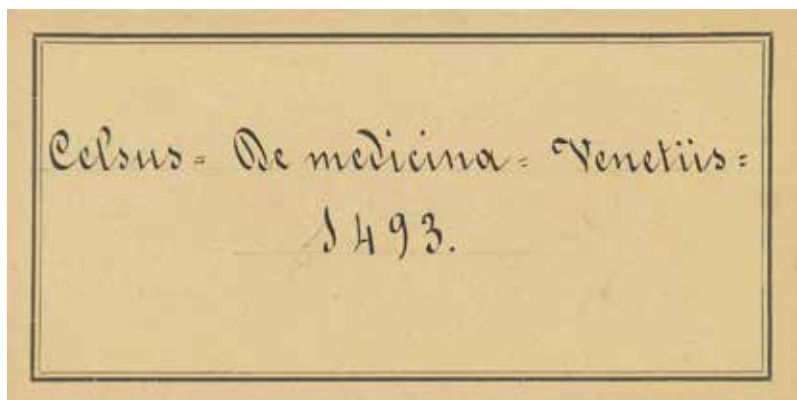 Celsus = De medicina = Venetiis =
1493.